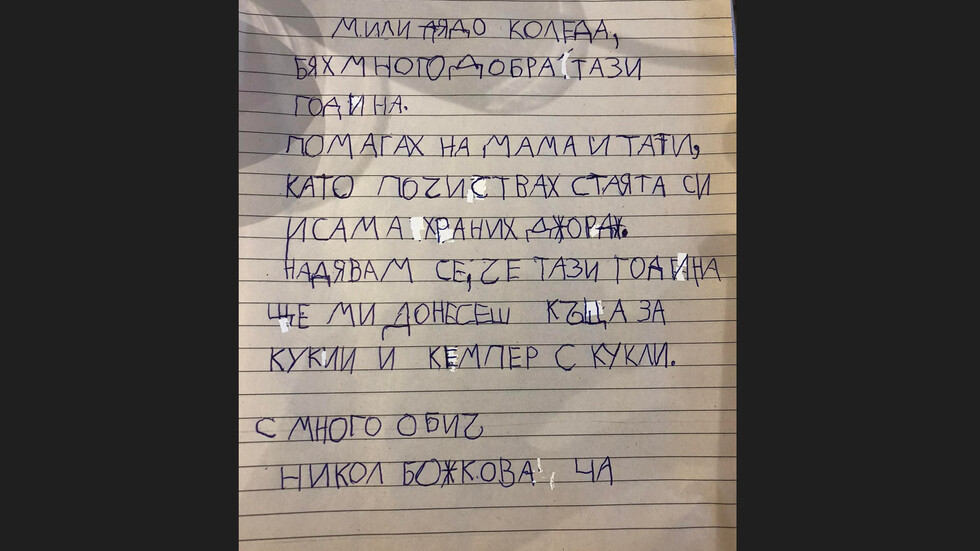 МИЛИ ДЯДО КОЛЕДА,
БЯХ МНОГО ДОБРА ТАЗИ
ГОДИНА.
ПОМАГАХ НА МАМА И ТАТИ,
КАТО ПОЧИСТВАХ СТАЯТА СИ
И САМА ХРАНИХ ДЖОРДЖ.
НАДЯВАМ СЕ, ЧЕ ТАЗИ ГОДИНА
ЩЕ МИ ДОНЕСЕШ КЪЩА ЗА
КУКЛИ И КЕМПЕР С КУКЛИ.
С МНОГО ОБИЧ
НИКОЛ БОЖКОВА, ЧА